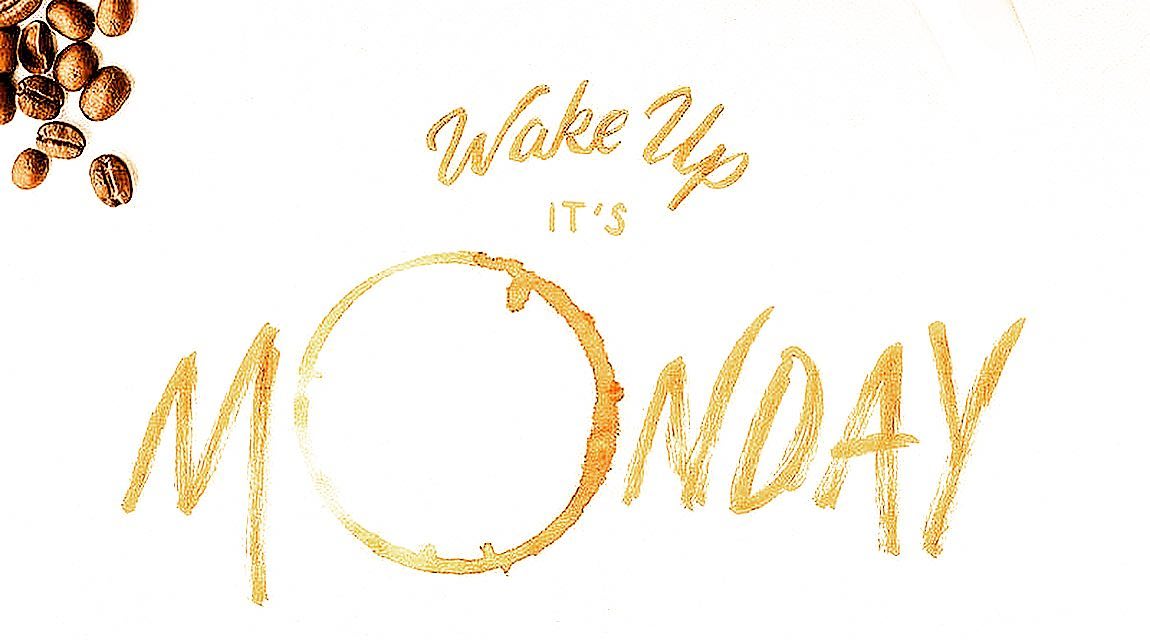 Wake Up
IT'S
MONDAY